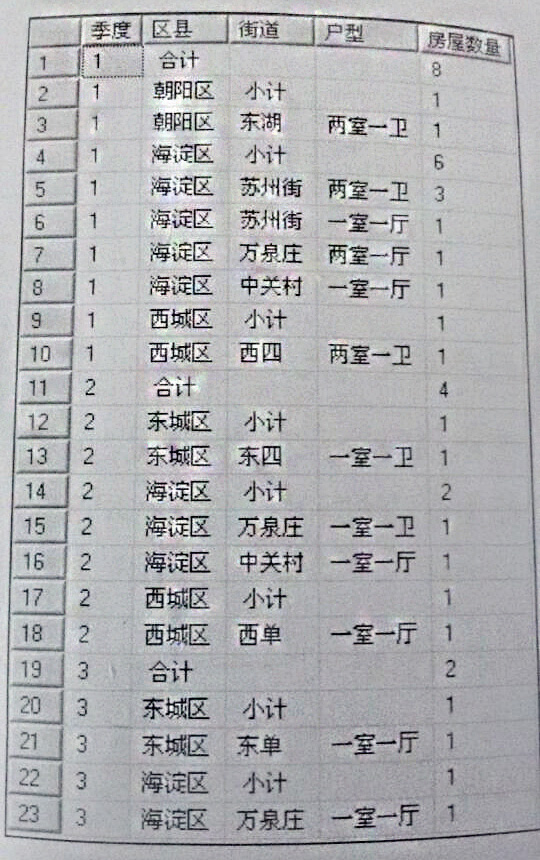 季度 区县 街道 户型 房屋数量
1 1 合计 8
2 1 朝阳区 小计 1
3 1 朝阳区 东湖 两室一卫 1
4 1 海淀区 小计 6
5 1 海淀区 苏州街 两室一卫 3
6 1 海淀区 苏州街 一室一厅 1
7 1 海淀区 万泉庄 两室一厅 1
8 1 海淀区 中关村 一室一厅 1
9 1 西城区 小计 1
10 1 西城区 西四 两室一卫 1
11 2 合计 4
12 2 东城区 小计 1
13 2 东城区 东四 一室一卫 1
14 2 海淀区 小计 2
15 2 海淀区 万泉庄 一室一卫 1
16 2 海淀区 中关村 一室一厅 1
17 2 西城区 小计 1
18 2 西城区 西单 一室一厅 1
19 3 合计 2
20 3 东城区 小计 1
21 3 东城区 东单 一室一厅 1
22 3 海淀区 小计 1
23 3 海淀区 万泉庄 一室一厅 1